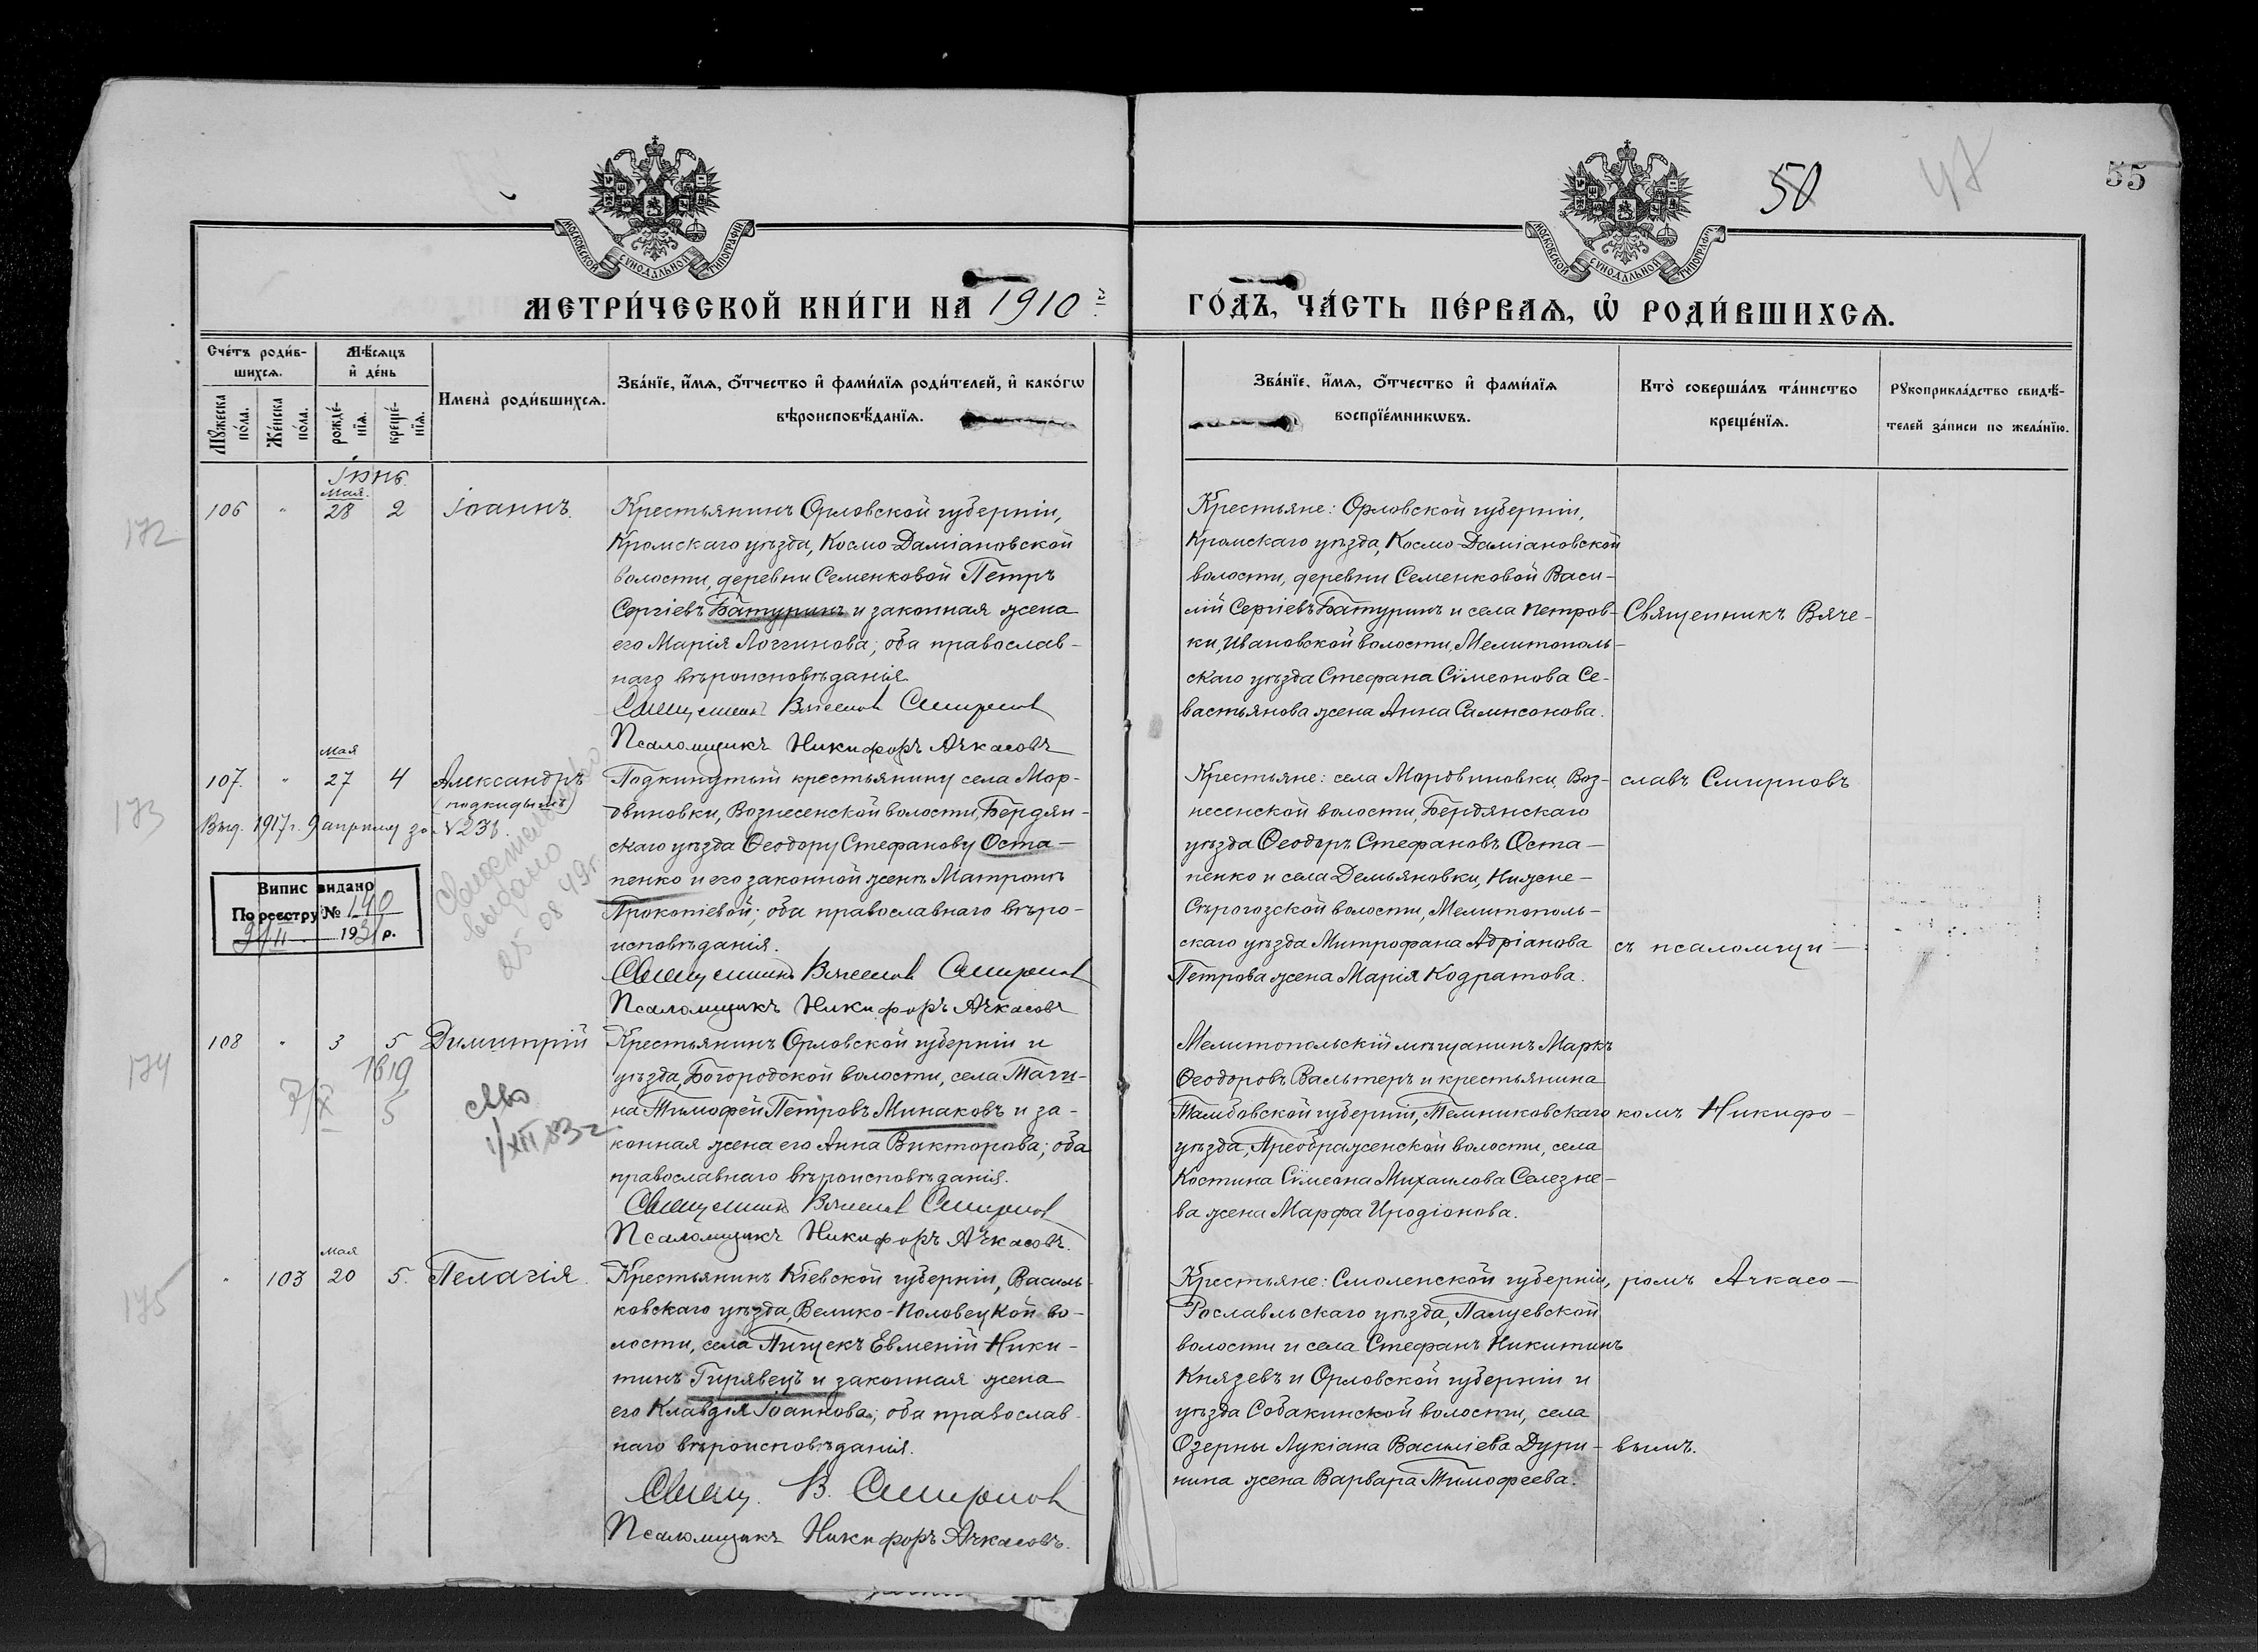 50
47
55
МОСКОВСКОЙ СУНОДАЛЬНОЙ ТИПОГРАФІИ
МОСКОВСКОЙ СУНОДАЛЬНОЙ ТИПОГРАФІИ
МЕТРИ́ЧЕСКОЙ КНИ́ГИ НА 1910 й
ГО́ДЪ, ЧА́СТЬ ПЕ́РВАѦ, Ѡ҆ РОДИ́ВШИХСѦ.
Счéтъ роди́в-
шихсѧ.
Мꙋ́жеска по́ла.
Же́нска по́ла.
Мѣ́сѧцъ
и҆ де́нь
рожде́-
нїѧ.
креще́-
нїѧ.
И҆мена̀ роди́вшихсѧ.
Зва́нїе, и҆́мѧ, ѻ҆́тчество и҆ фами́лїѧ роди́телей, и҆ како́гѡ
вѣроисповѣ́данїѧ.
Зва́нїе, и҆́мѧ, ѻ҆́тчество и҆ фами́лїѧ
воспрїе́мникѡвъ.
Кто̀ соверша́лъ та́инство
креще́нїѧ.
Рꙋкоприкла́дство свидѣ́-
телей за́писи по жела́нїю.
Іюнь.
172
106 " Мая. 28 2 Іоаннъ.
Крестьянинъ Орловской губерніи,
Кромскаго уѣзда, Космо-Даміановской
волости, деревни Семенковой Петръ
Сергіевъ Батуринъ и законная жена
его Марія Логгинова; оба православ-
наго вѣроисповѣданія.
Священникъ Вячеслав Смирнов
Псаломщикъ Никифоръ Ачкасовъ
Крестьяне: Орловской губерніи,
Кромскаго уѣзда, Космо-Даміановской
волости, деревни Семенковой Васи-
лій Сергіевъ Батуринъ и села Петров-
ки, Ивановской волости, Мелитополь-
скаго уѣзда Стефана Сѵмеонова Се-
вастьянова жена Анна Сампсонова.
Священникъ Вяче-
173
107. " Мая 27 4 Александръ
(подкидышъ)
Выд. 1917 г. 9 апрѣля за №236.
Випис видано
По реестру № 140
193 р.
Свидетельство
выдано
25 08 49г.
Подкинутый крестьянину села Мор-
двиновки, Вознесенской волости, Бердян-
скаго уѣзда Ѳеодору Стефанову Оста-
пенко и его законной женѣ Матронѣ
Прокопіевой; оба православнаго вѣро-
исповѣданія.
Священникъ Вячеслав Смирнов
Псаломщикъ Никифоръ Ачкасовъ
Крестьяне: села Мордвиновки, Воз-
несенской волости, Бердянскаго
уѣзда Ѳеодоръ Стефановъ Оста-
пенко и села Демьяновки, Нижне-
Сѣрогозской волости, Мелитополь-
скаго уѣзда Митрофана Адріанова
Петрова жена Марія Кодратова.
славъ Смирновъ
съ псаломщи-
174
108 " 3 5 Димитрій
1619
7/X 5
св-во
1/XII 83 г.
Крестьянинъ Орловской губерніи и
уѣзда, Богородской волости, села Таги-
на Тимофей Петровъ Минаковъ и за-
конная жена его Анна Викторова; оба
православнаго вѣроисповѣданія.
Священникъ Вячеслав Смирнов
Псаломщикъ Никифоръ Ачкасовъ.
Мелитопольскій мѣщанинъ Маркъ
Ѳеодоровъ Вальтеръ и крестьянина
Тамбовской губерніи, Темниковскаго
уѣзда, Преображенской волости, села
Костина Сѵмеона Михаилова Селезне-
ва жена Марфа Иродіонова.
комъ Никифо-
175
" 103 Мая 20 5. Пелагія.
Крестьянинъ Кіевской губерніи, Василь-
ковскаго уѣзда, Велико-Половецкой во-
лости, села Пищекъ Евменій Ники-
тинъ Гирявецъ и законная жена
его Клавдія Іоаннова; оба православ-
наго вѣроисповѣданія.
Свящ. В. Смирнов
Псаломщикъ Никифоръ Ачкасовъ.
Крестьяне: Смоленской губерніи,
Рославльскаго уѣзда, Палуевской
волости и села Стефанъ Никитинъ
Князевъ и Орловской губерніи и
уѣзда Собакинской волости, села
Озерны Лукіана Василіева Дури-
нина жена Варвара Тимофеева.
ромъ Ачкасо-
вымъ.